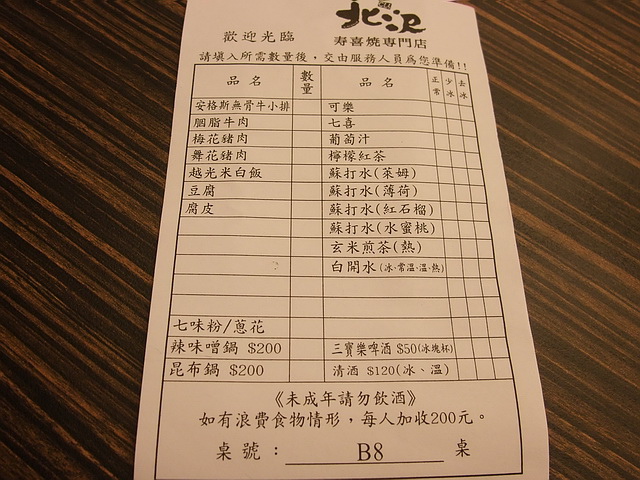 北沢
歡迎光臨 寿喜燒専門店
請填入所需數量後，交由服務人員為您準備!!
品名 數量 品名 正常 少冰 去冰
安格斯無骨牛小排 可樂
胭脂牛肉 七喜
梅花豬肉 葡萄汁
舞花豬肉 檸檬紅茶
越光米白飯 蘇打水(萊姆)
豆腐 蘇打水(薄荷)
腐皮 蘇打水(紅石榴)
蘇打水(水蜜桃)
玄米煎茶(熱)
白開水(冰、常溫、溫、熱)
七味粉/蔥花
辣味噌鍋 $200 三寶樂啤酒 $50(冰塊杯)
昆布鍋 $200 清酒 $120(冰、溫)
《未成年請勿飲酒》
如有浪費食物情形，每人加收200元。
桌號： B8 桌